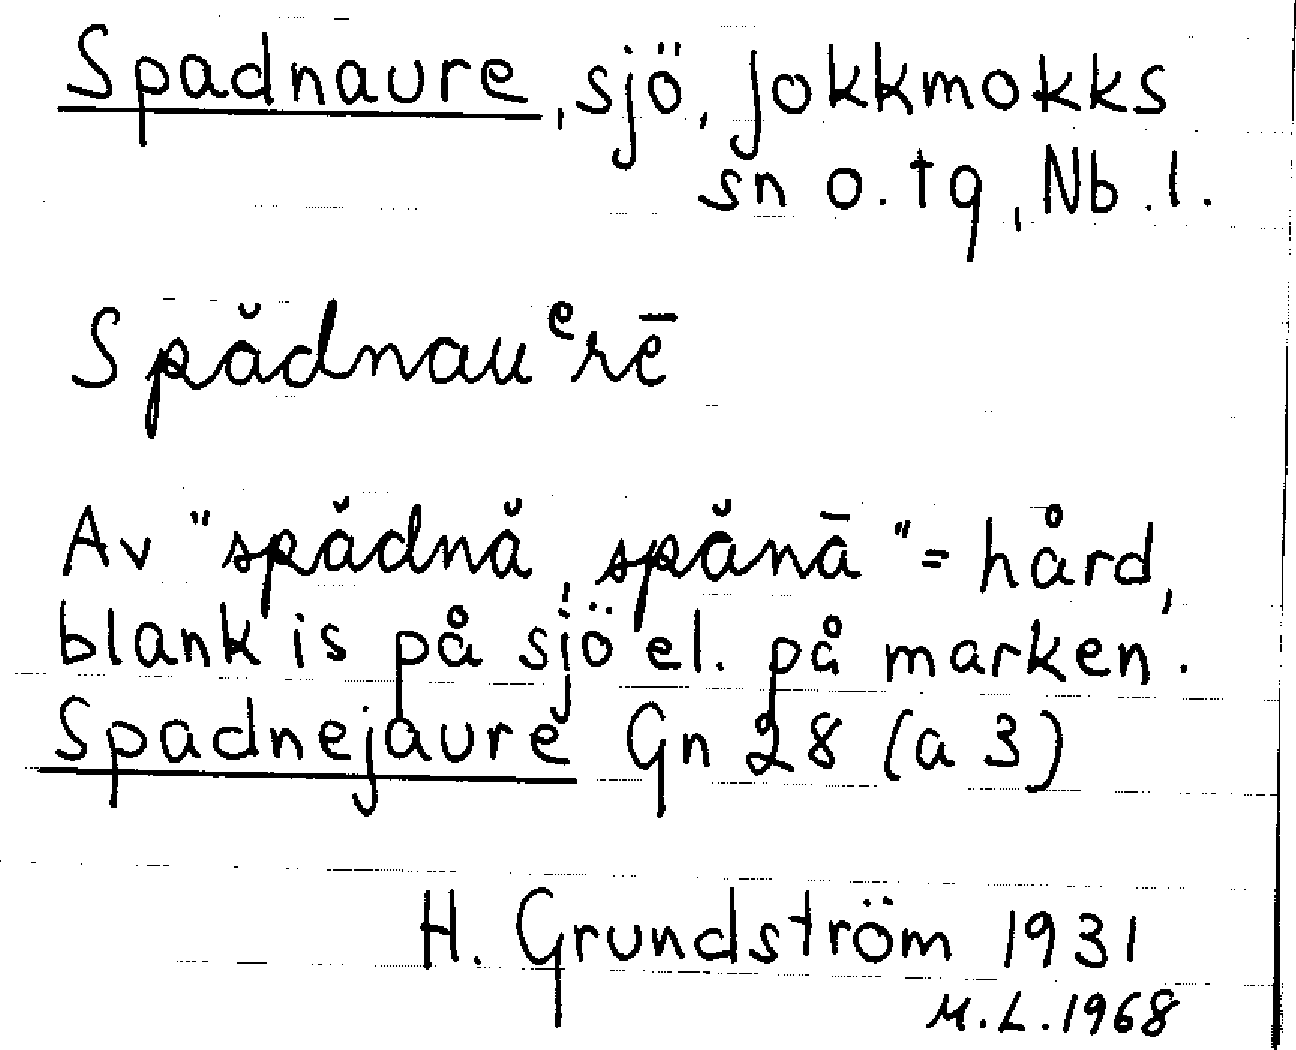 Spadnaure, sjö, Jokkmokks
sn o. tg, Nb. l.
Spădnauᵉrē
Av "spădnă, spănā" = hård,
blank is på sjö el. på marken.
Spadnejaure Gn 28 (a 3)
H. Grundström 1931
M.L. 1968